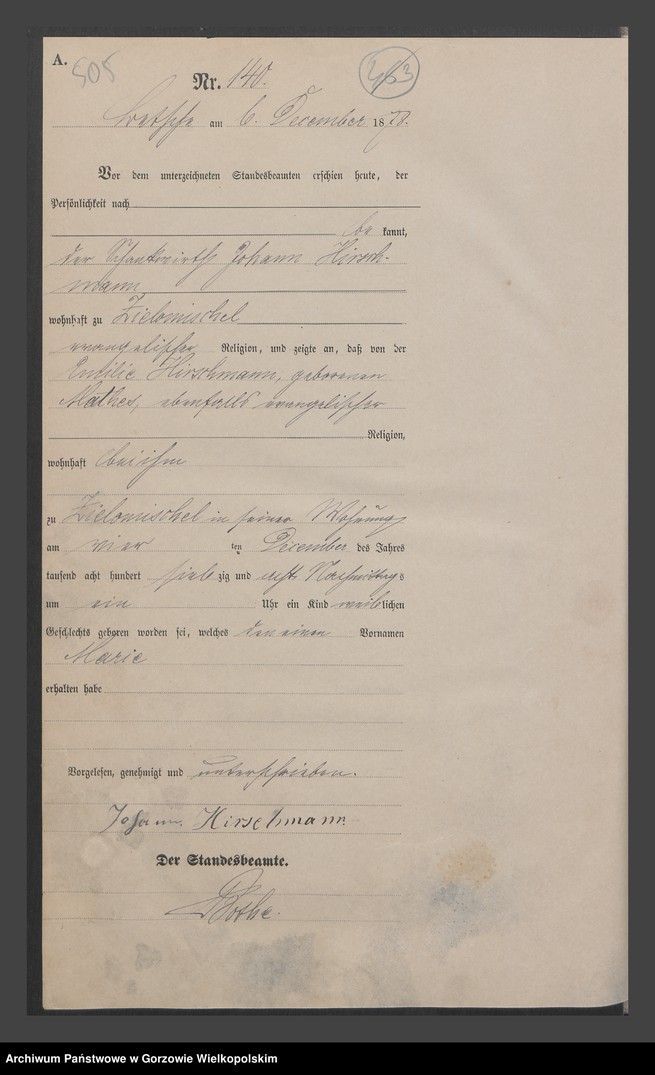 A. 505
453
Nr. 140.
Kretsche am 6. December 1878.
Vor dem unterzeichneten Standesbeamten erschien heute, der
Persönlichkeit nach
be kannt,
der Schankwirth Johann Hirsch-
mann
wohnhaft zu Zielomischel
evangelischer Religion, und zeigte an, daß von der
Emilie Hirschmann, geborenen
Mathes, ebenfalls evangelischer
Religion,
wohnhaft bei ihm
zu Zielomischel in seiner Wohnung
am vier ten December des Jahres
tausend acht hundert sieb zig und acht Nachmittags
um ein Uhr ein Kind weiblichen
Geschlechts geboren worden sei, welches den einen Vornamen
Marie
erhalten habe
Vorgelesen, genehmigt und unterschrieben.
Johann Hirschmann
Der Standesbeamte.
Archiwum Państwowe w Gorzowie Wielkopolskim